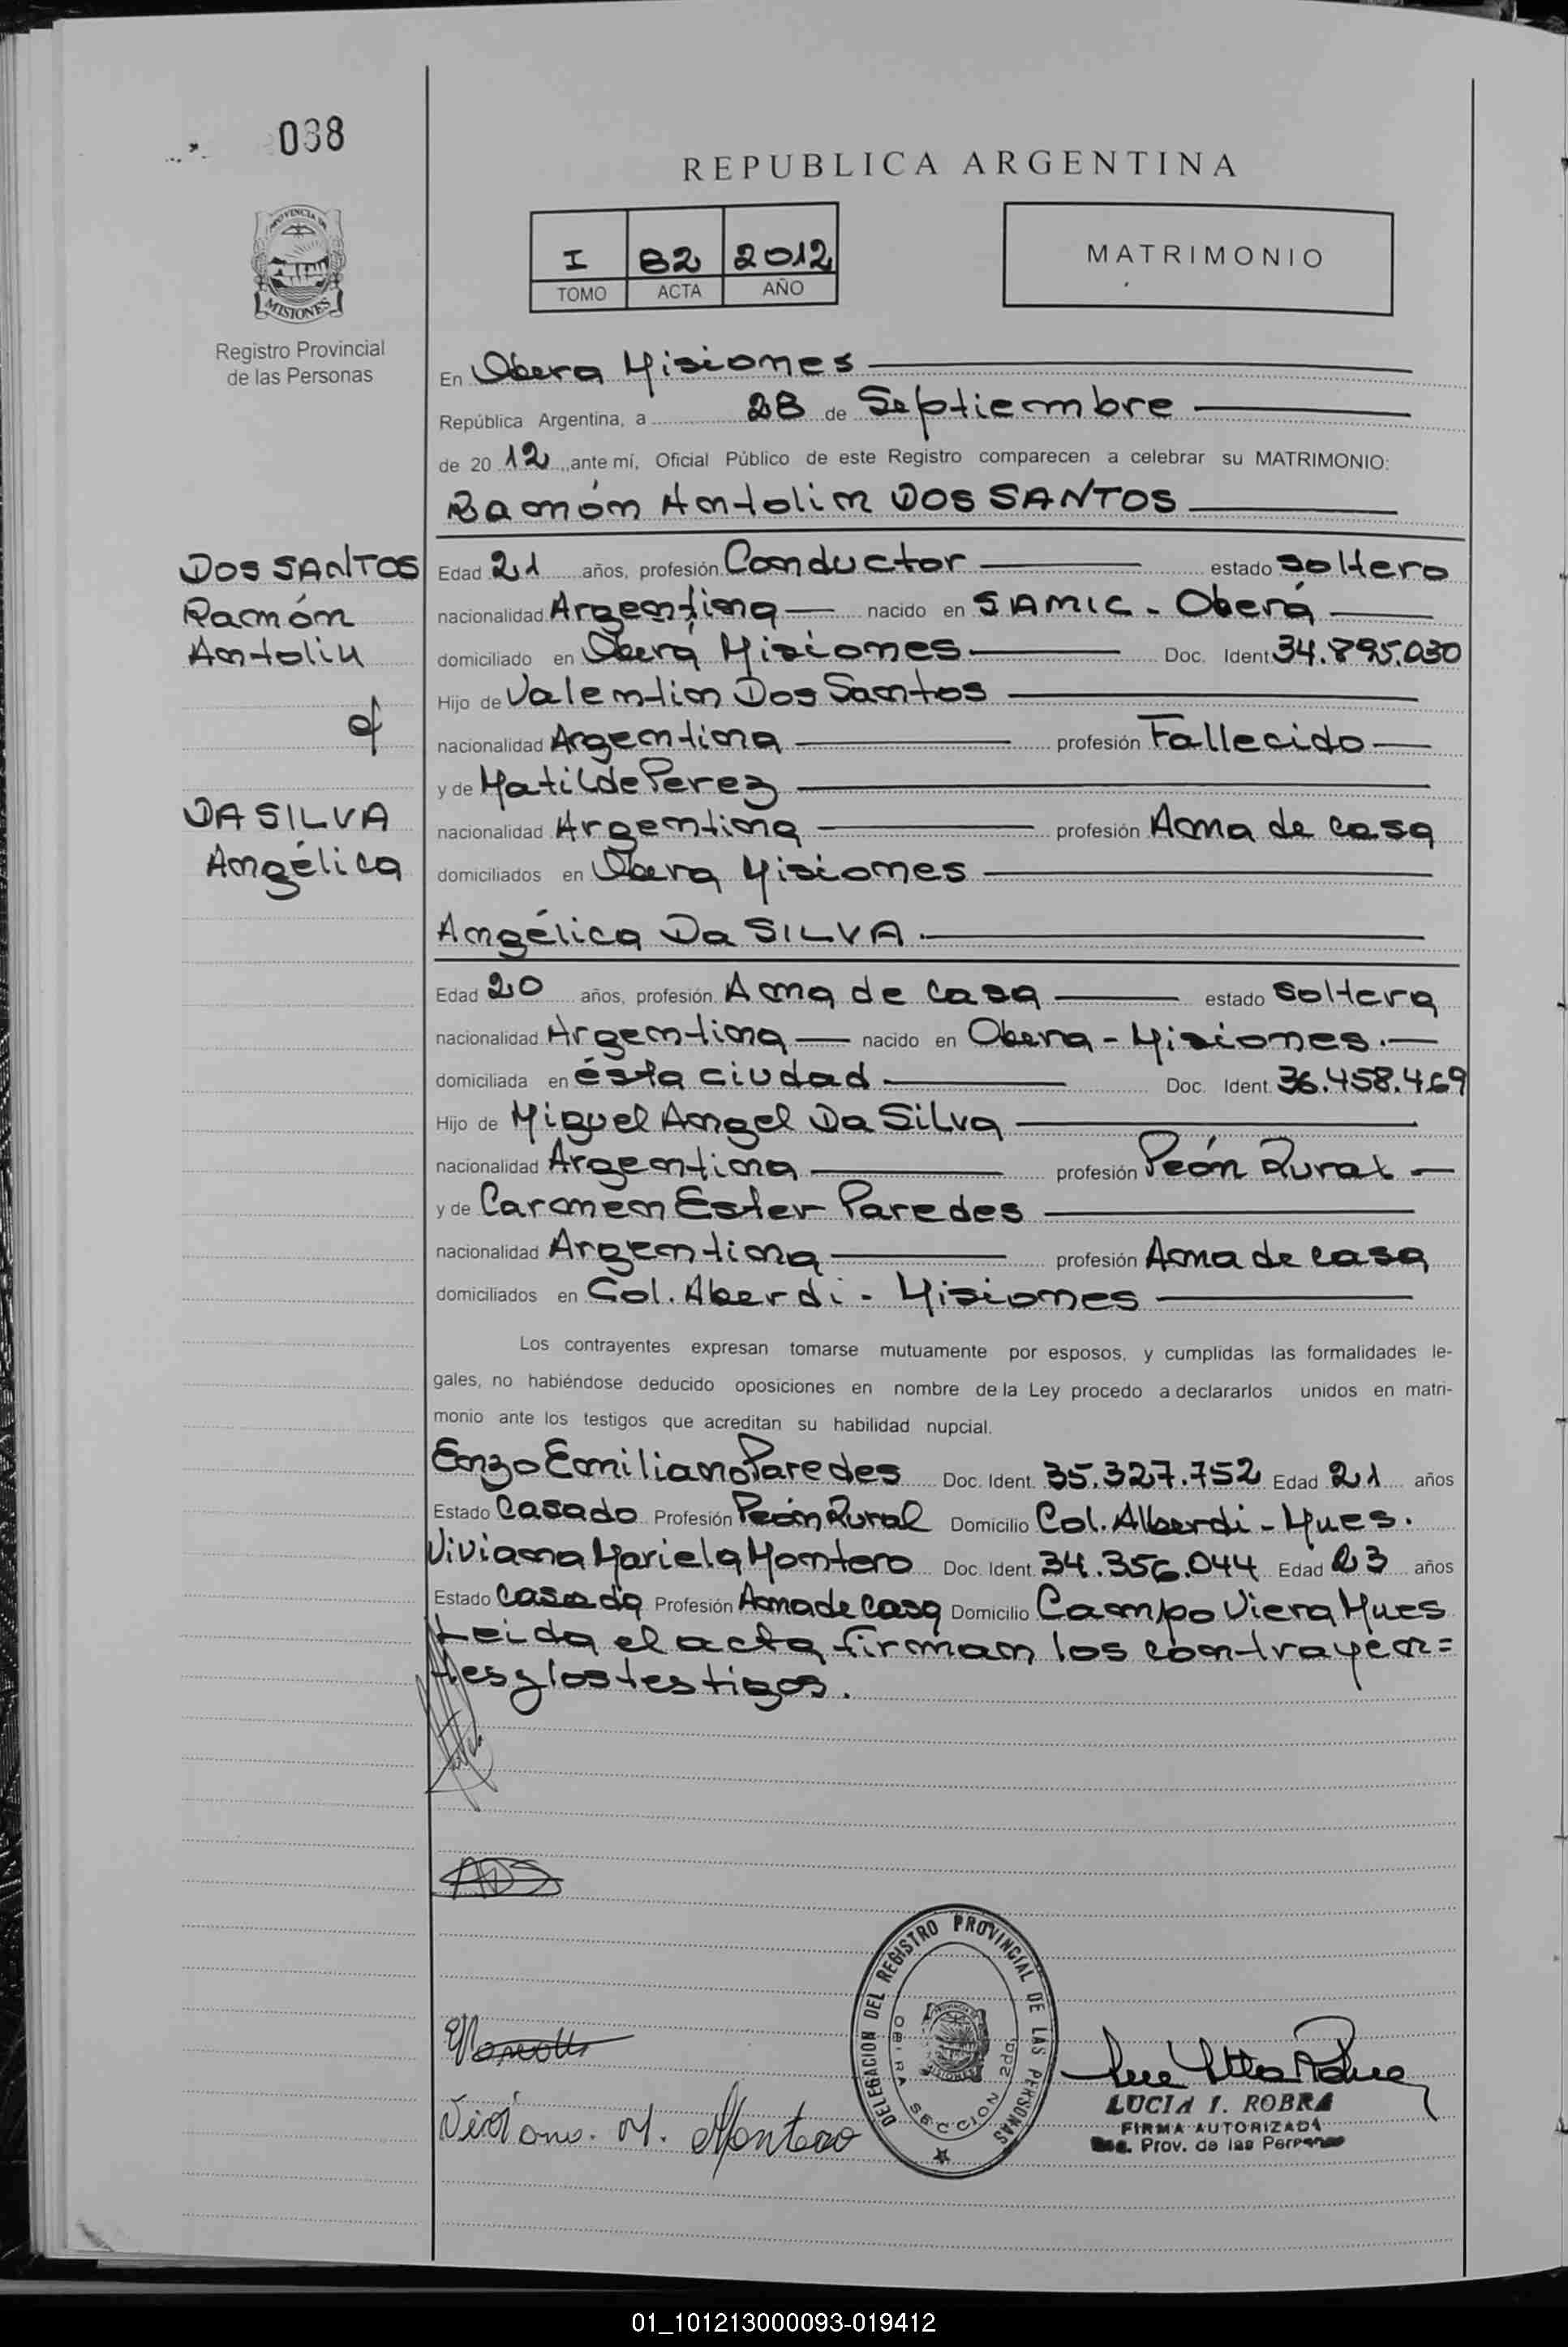 038
REPUBLICA ARGENTINA
I 82 2012
TOMO ACTA AÑO
MATRIMONIO
PROVINCIA DE
MISIONES
Registro Provincial
de las Personas
En Obera Misiones
República Argentina, a 28 de Septiembre
de 20 12 ante mí, Oficial Público de este Registro comparecen a celebrar su MATRIMONIO:
Ramón Antolin DOS SANTOS
DOS SANTOS
Ramón
Antolin
c/
DA SILVA
Angélica
Edad 21 años, profesión Conductor estado soltero
nacionalidad Argentina nacido en SAMIC - Oberá
domiciliado en Oberá Misiones Doc. Ident. 34.895.030
Hijo de Valentin Dos Santos
nacionalidad Argentina profesión Fallecido
y de Matilde Perez
nacionalidad Argentina profesión Ama de casa
domiciliados en Obera Misiones
Angélica Da SILVA.
Edad 20 años, profesión Ama de casa estado soltera
nacionalidad Argentina nacido en Obera - Misiones.
domiciliada en ésta ciudad Doc. Ident. 36.458.469
Hijo de Miguel Angel Da Silva
nacionalidad Argentina profesión Peón Rural
y de Carmen Ester Paredes
nacionalidad Argentina profesión Ama de casa
domiciliados en Col. Alberdi - Misiones
Los contrayentes expresan tomarse mutuamente por esposos, y cumplidas las formalidades le-
gales, no habiéndose deducido oposiciones en nombre de la Ley procedo a declararlos unidos en matri-
monio ante los testigos que acreditan su habilidad nupcial.
Enzo Emiliano Paredes Doc. Ident. 35.327.752 Edad 21 años
Estado Casado Profesión Peón Rural Domicilio Col. Alberdi - Mnes.
Viviana Mariela Montero Doc. Ident. 34.356.044 Edad 23 años
Estado casada Profesión Ama de casa Domicilio Campo Viera Mnes
Leida el acta firman los contrayen=
tes y los testigos.
ADS
DELEGACION DEL REGISTRO PROVINCIAL DE LAS PERSONAS
OBERA SECCION 2da.
Viviana. M. Montero
LUCIA I. ROBRA
FIRMA AUTORIZADA
Reg. Prov. de las Personas
01_101213000093-019412